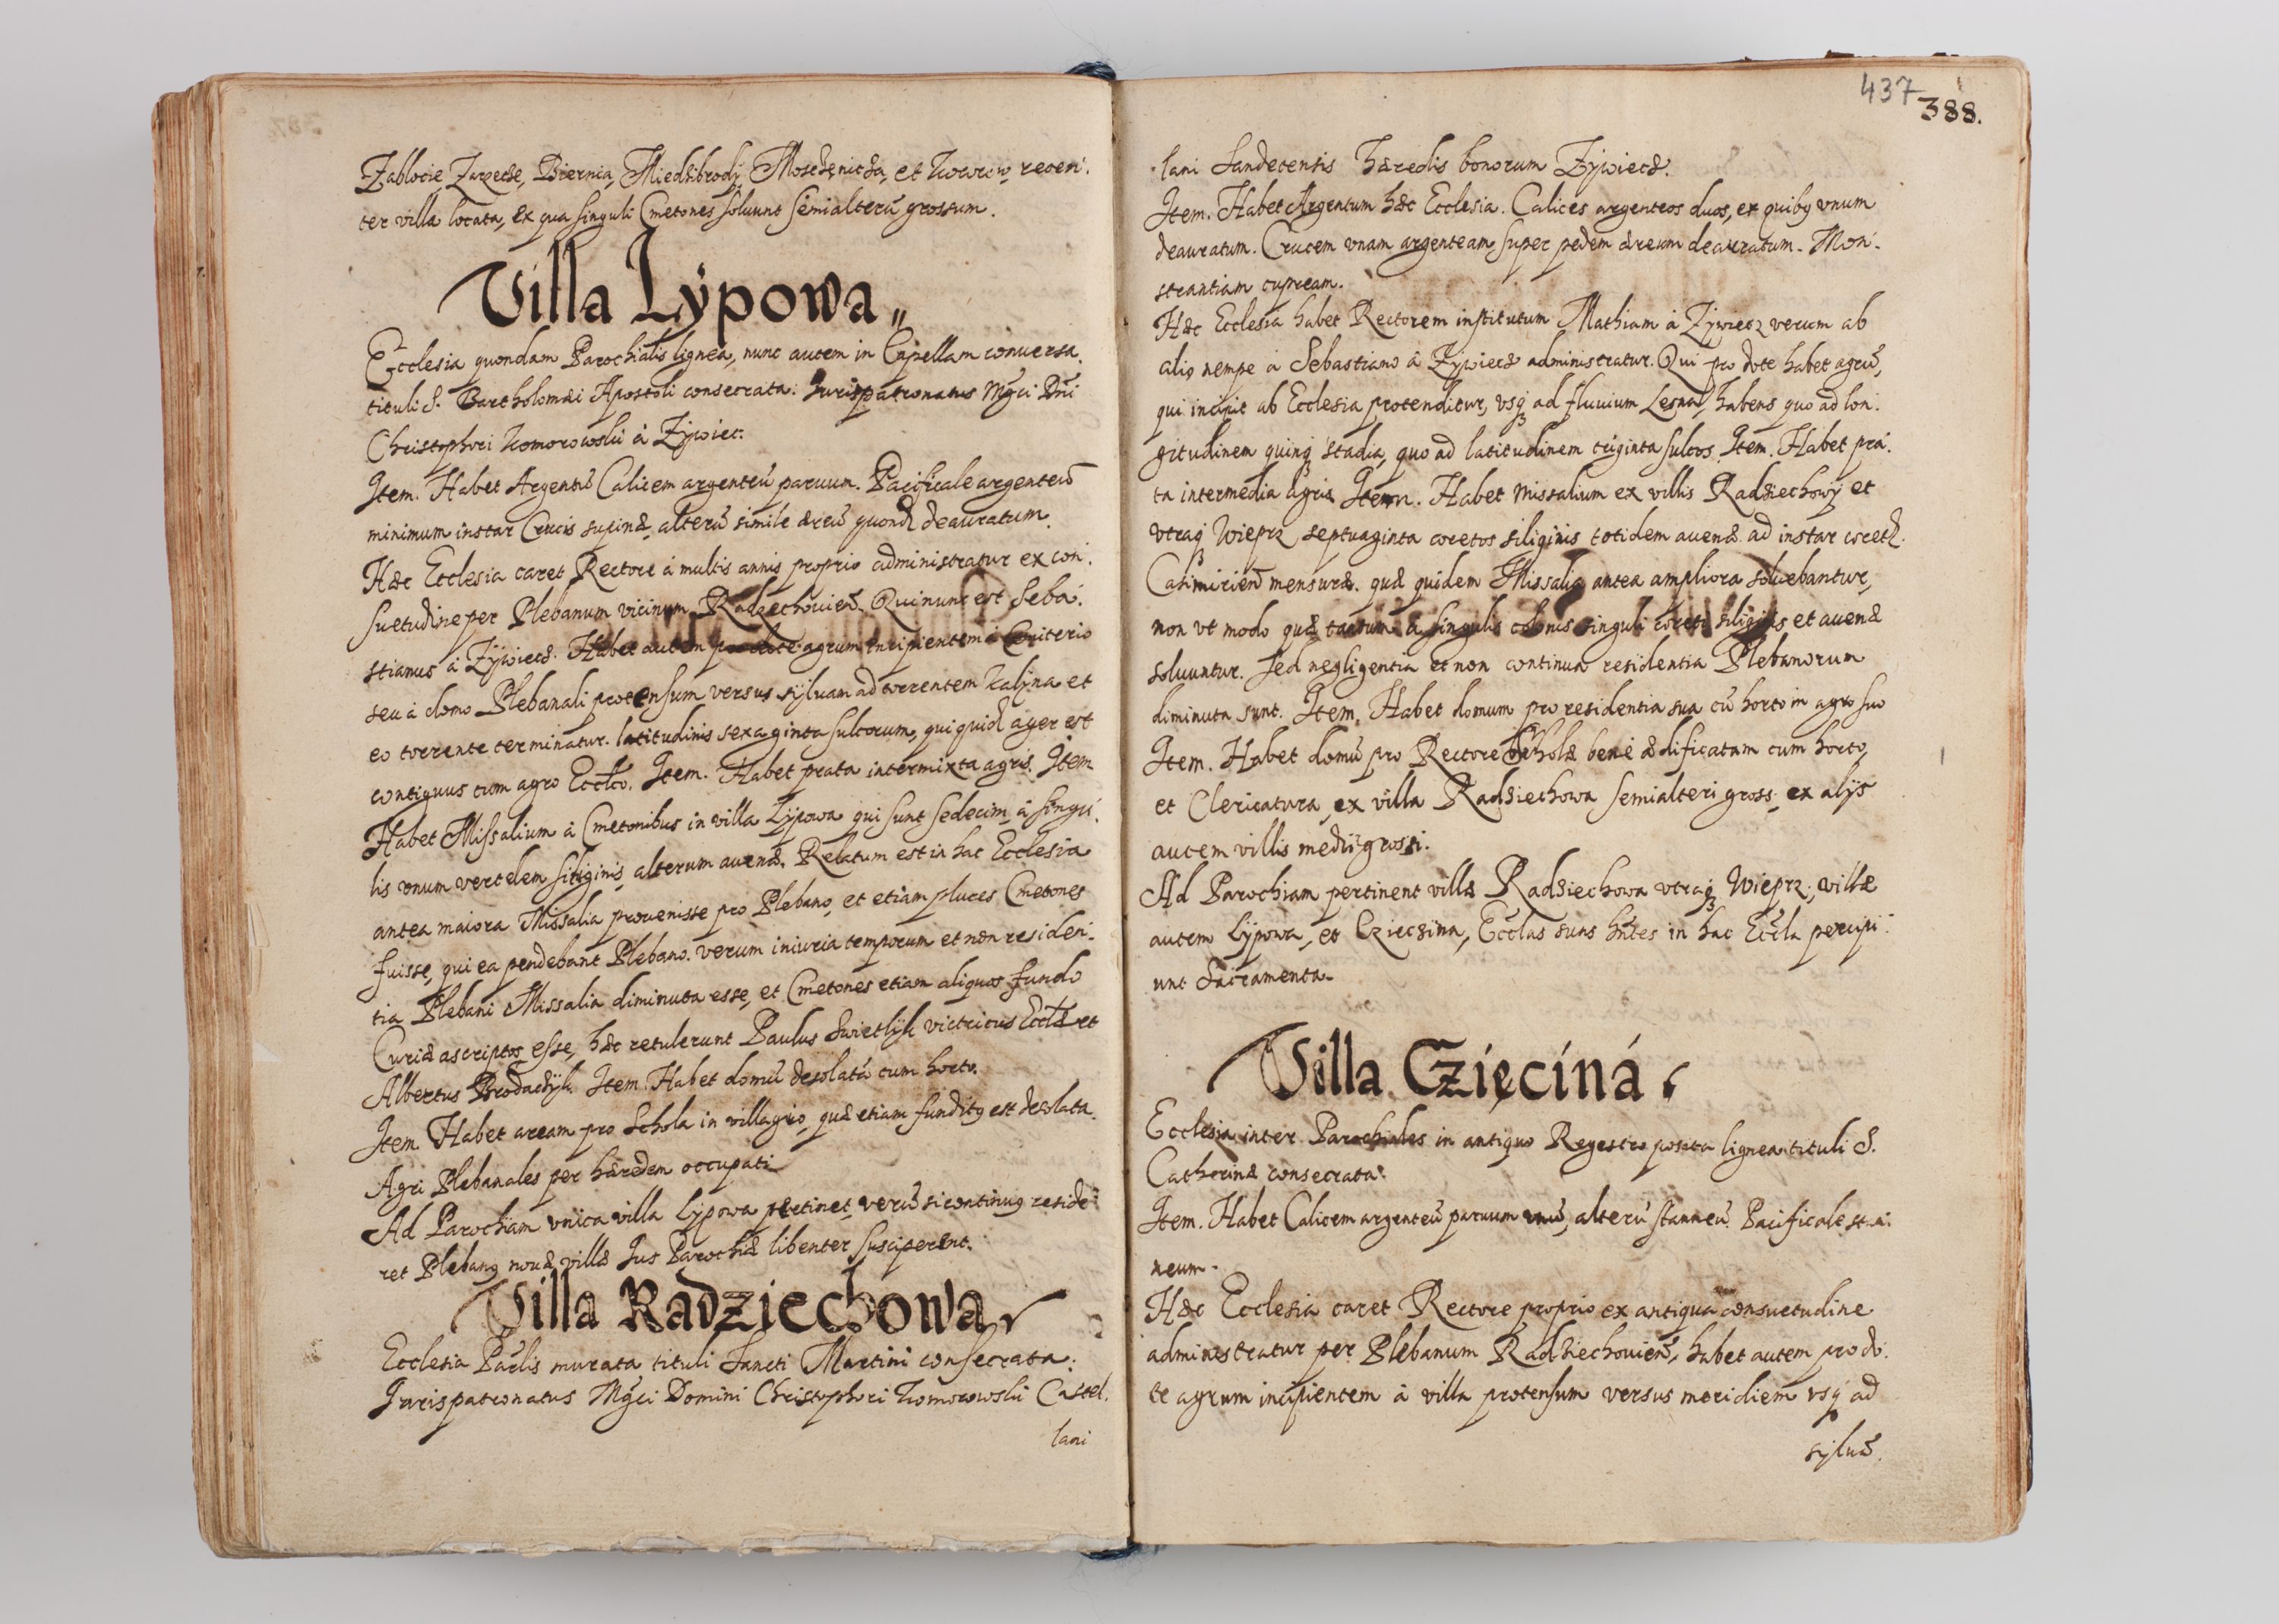 Zablocie Zarzecze, Biernia, Miedzibrodÿ Moszczenicza, et Kocow, recen:
ter villa locata, ex qua singuli Cmetones soluunt semialterū grossum.
Villa Lÿpowa
Ecclesia quondam Parochialis lignea, nunc autem in Capellam conuersa,
tituli S. Bartholomæi Apostoli consecrata: Jurispatronatus Mgci Dni
Christophori Komorowski à Zÿwiec.
Item. Habet Argentū Calicem argenteū paruum. Pacificale argenteū
minimum instar Crucis supinæ, alterū simile æreū quond deauratum.
Hæc Ecclesia caret Rectore à multis annis proprio administratur ex con:
suetudine per Plebanum vicinum Radzechouień. Qui nunc est Seba:
stianus à Zÿwiecz. Habet autem pro dote agrum incipientem à Cemiterio
seu à domo Plebanali protensum versus sÿluam ad torrentem Kalÿna et
eo torrente terminatur. latitudinis sexaginta sulcorum, qui quid ager est
contiguus cum agro Ecclco. Item. Habet prata intermixta agris. Item
Habet Missalium à Cmetonibus in villa Lÿpowa qui sunt sedecim à singu:
lis vnum vertelem siliginis, alterum auenæ. Relatum est in hac Ecclesia
antea maiora Missalia prouenisse pro Plebano, et etiam plures Cmetones
fuisse, qui ea pendebant Plebano. verum iniuria temporum et non residen:
tia Plebani Missalia diminuta esse, et Cmetones etiam aliquos fundo
Curiæ ascriptos esse, hæc retulerunt Paulus Swietlÿk victricus Ecclæ et
Albertus Brodaczÿk. Item Habet domū desolatā cum horto.
Item Habet aream pro Schola in villagio, quæ etiam funditq est desolata.
Agri Plebanales per hæredem occupati
Ad Parochiam vnica villa Lÿpowa pertinet, verū si continuq reside:
ret Plebanq nouæ villæ Jus Parochiæ libenter susciperent.
Villa Radziechowa
Ecclesia Parlis murata tituli Sancti Martini consecrata:
Jurispatronatus Mgci Domini Christophori Komorowski Castel:
lani
437
388.
lani Sandecensis hæredis bonorum Zÿwiecz.
Item. Habet Argentum hæc Ecclesia. Calices argenteos duos, ex quibq vnum
deauratum. Crucem vnam argenteam super pedem æreum deauratum. Mon:
strantiam cupream.
Hæc Ecclesia habet Rectorem institutum Mathiam à Zÿwiecz verum ab
alio nempe à Sebastiano à Zÿwiecz administratur. Qui pro dote habet agrū,
qui incipit ab Ecclesia protenditur, vsq ad fluuium Lesna, habens quo ad lon:
gitudinem quinq stadia, quo ad latitudinem triginta sulcos. Item. Habet pra:
ta intermedia agris Item. Habet Missalium ex villis Radziechowÿ et
vtraq Wieprz septuaginta coretos siliginis totidem auenæ ad instar coretz.
Casimirień mensuræ. quæ quidem Missalia antea ampliora soluebantur,
non vt modo quæ tantum à singulis colonis singuli coreti siliginis et auenæ
soluuntur. sed negligentia et non continua residentia Plebanorum
diminuta sunt. Item. Habet domum pro residentia sua cū horto in agro suo
Item. Habet domū pro Rectore Scholæ benè ædificatam cum horto,
et Clericatura, ex villa Radziechowa semialteri gross, ex alÿs
autem villis medÿ grossi.
Ad Parochiam pertinent villæ Radziechowa vtraq Wieprz; villæ
autem Lÿpowa, et Czieczina, Ecclas suas hntes in hac Eccla percipi:
unt Sacramenta.
Villa Czięciná
Ecclesia inter Parochiales in antiquo Regestro posita lignea tituli S.
Catherinæ consecrata.
Item. Habet Calicem argenteū paruum vnū, alterū stanneū. Pacificale stan:
neum.
Hæc Ecclesia caret Rectore proprio ex antiqua consuetudine
administratur per Plebanum Radziechouień, habet autem pro do:
te agrum incipientem à villa protensum versus meridiem vsq ad
sÿluā.